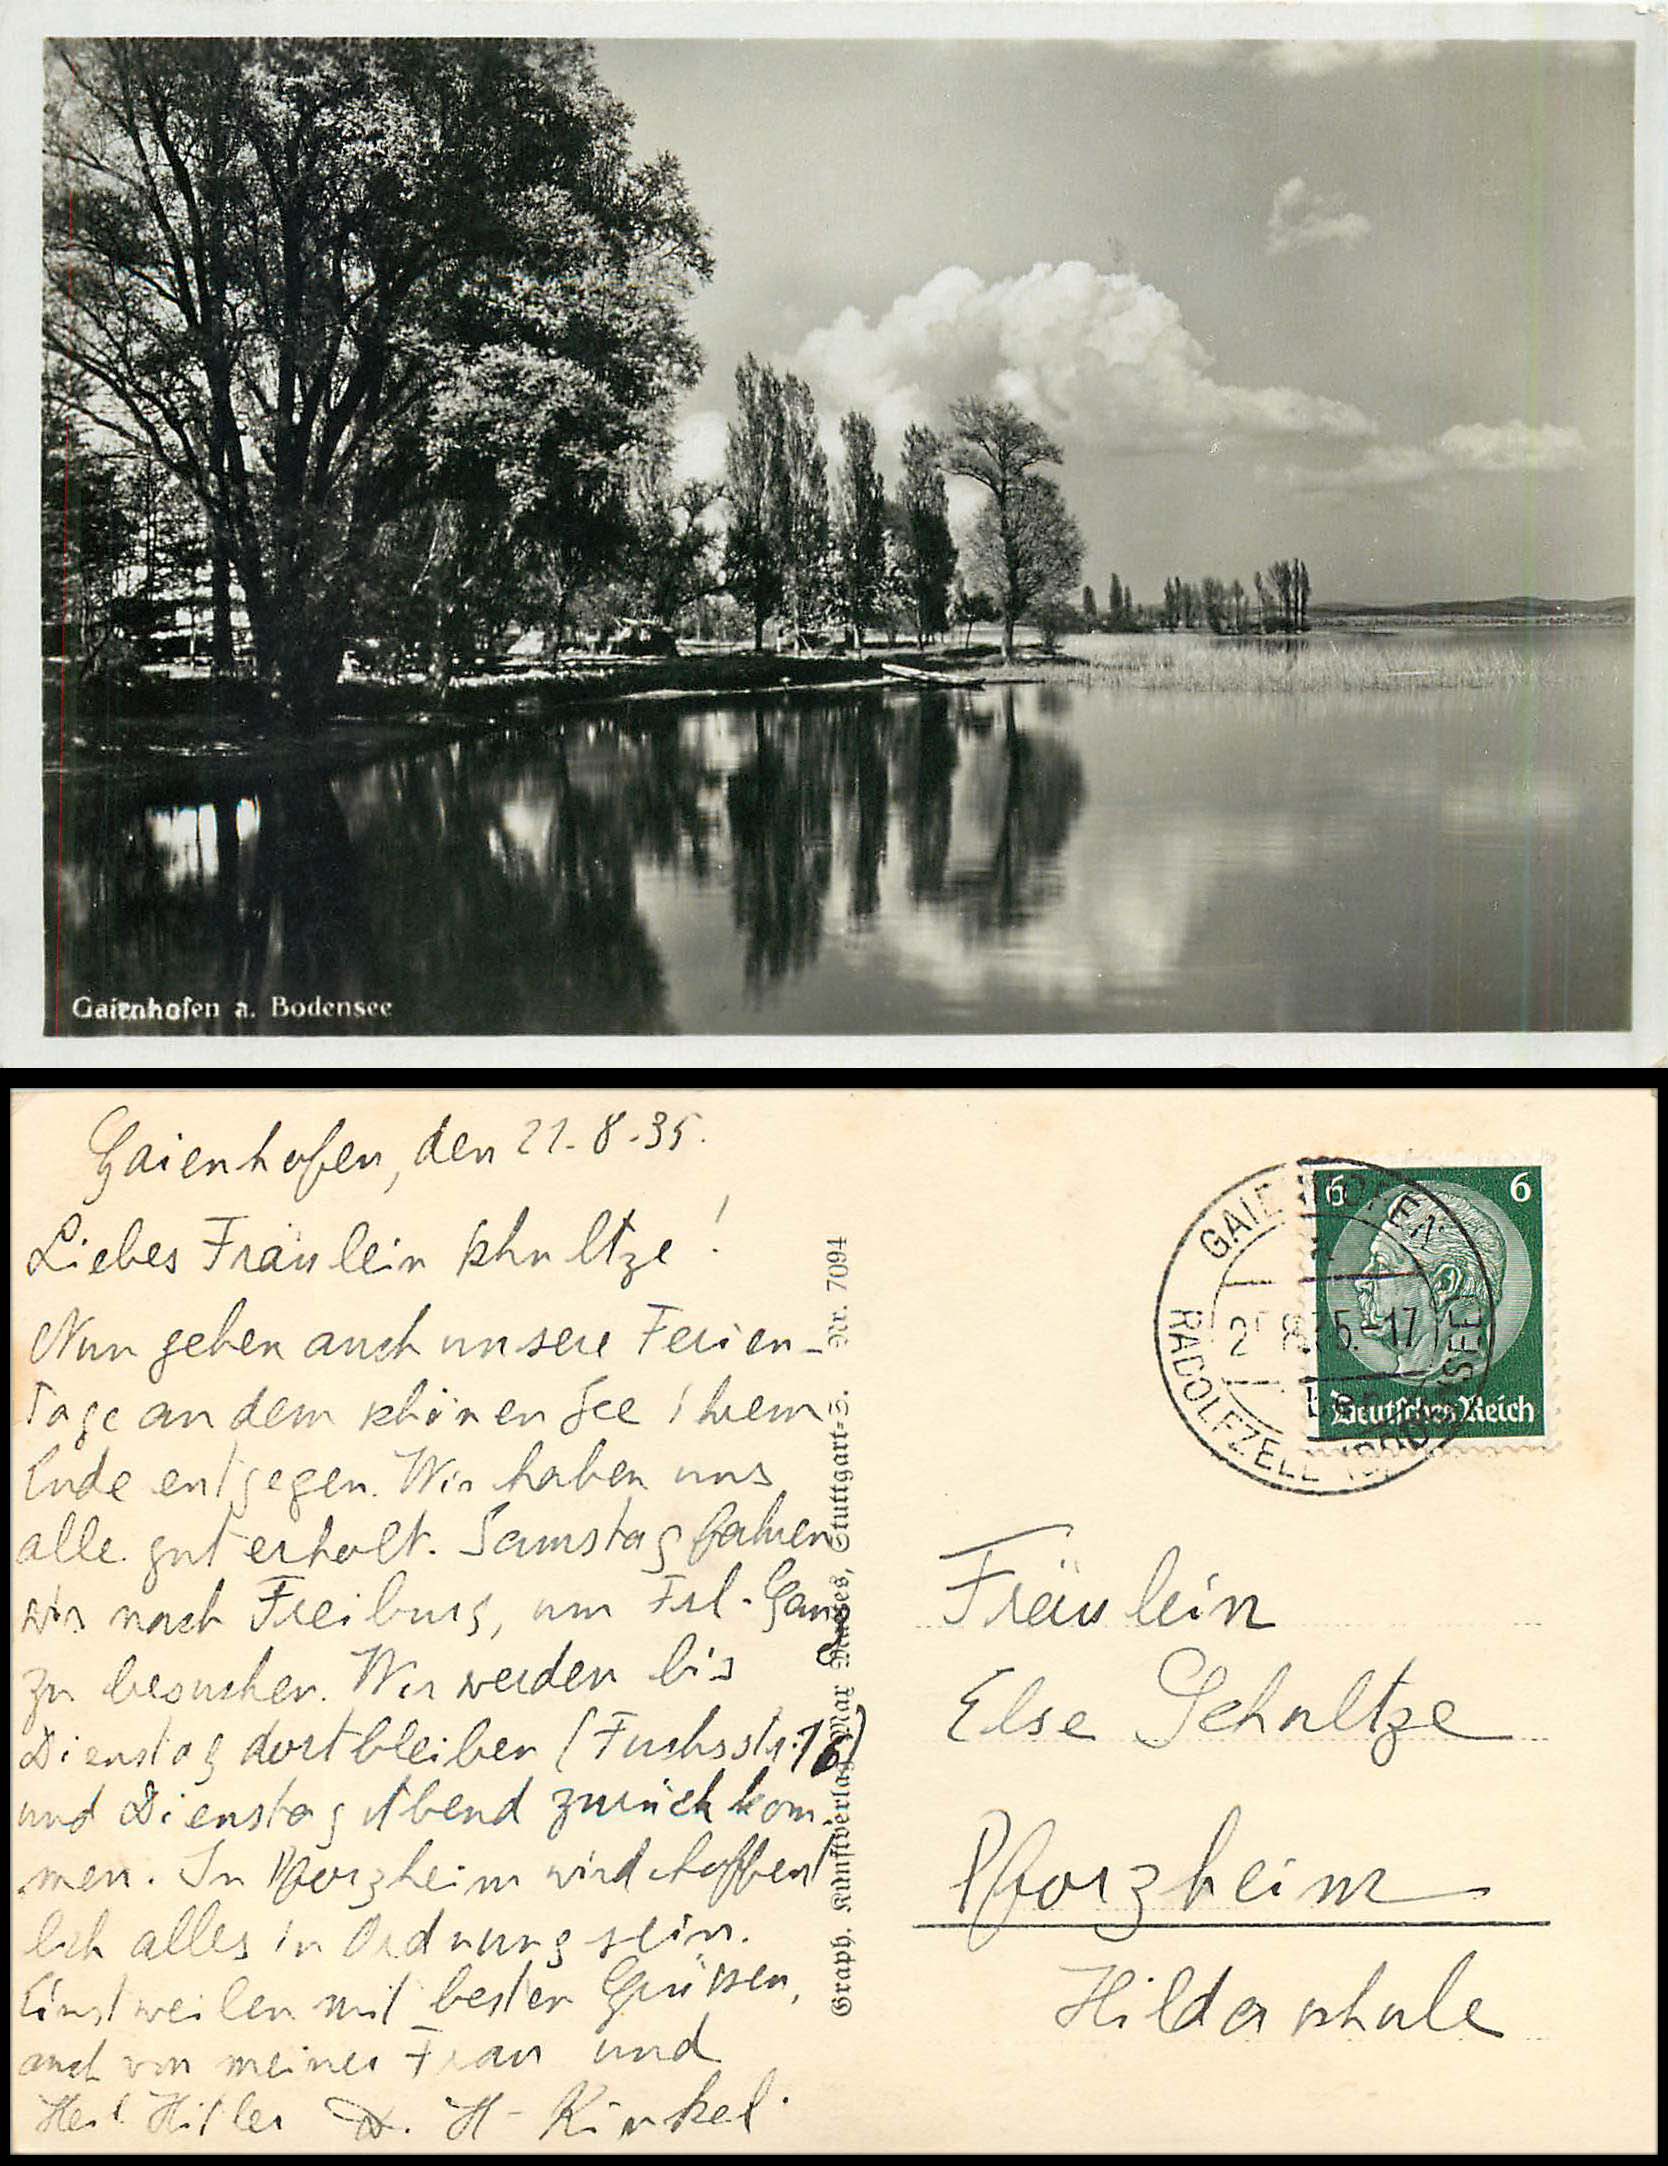 Gaienhofen a. Bodensee
Gaienhofen, den 21.8.35.
Liebes Fräulein Schultze!
Nun gehen auch unsere Ferien-
tage an dem schönen See ihrem
Ende entgegen. Wir haben uns
alle gut erholt. Samstag fahren
wir nach Freiburg, um Frl. Gans
zu besuchen. Wir werden bis
Dienstag dort bleiben (Fuchsstr. 16)
und Dienstag Abend zurückkom-
men. In Pforzheim wird hoffent
lich alles in Ordnung sein.
Einstweilen mit besten Grüssen,
auch von meiner Frau und
Heil Hitler Dr. H. Kinkel.
Graph. Kunstverlag Max Maeses, Stuttgart-S. Nr. 7094
GAIENHOFEN
2 .8.35.-17
RADOLFZELL (BODENSEE)
6 6
Deutsches Reich
Fräulein
Else Schultze
Pforzheim
Hildaschule